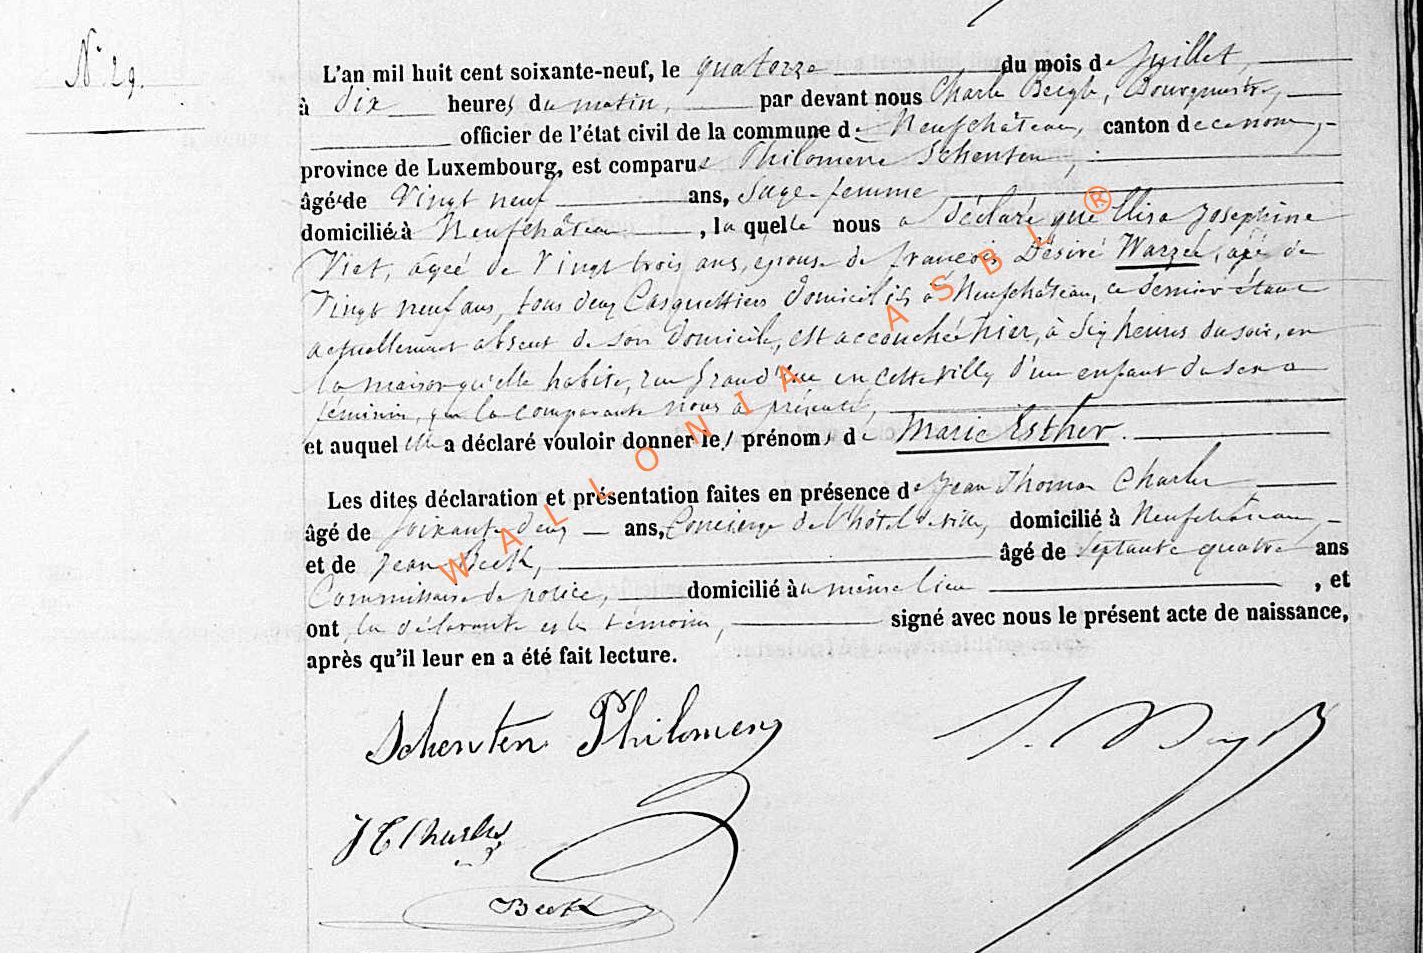 N° 29.
L'an mil huit cent soixante-neuf, le quatorze du mois de Juillet,
à dix heures du matin, par devant nous Charles Bourgmestre,
officier de l'état civil de la commune de Neufchâteau, canton de ce nom,
province de Luxembourg, est comparue Philomene Schenten,
âgée de Vingt neuf ans, Sage-femme
domiciliée à Neufchâteau, laquelle nous a déclaré que Elisa Josephine
Viet, agée de Vingt trois ans, epouse de francois Désiré Warzée, agé de
Vingt neuf ans, tous deux Casquettiers domiciliés à Neufchâteau, ce dernier étant
actuellement absent de son domicile, est accouchée hier, à dix heures du soir, en
la maison qu'elle habite, rue Grand'rue en cette ville, d'un enfant du sexe
féminin, que la comparante nous a présenté,
et auquel elle a déclaré vouloir donner les prénoms de Marie Esther.
Les dites déclaration et présentation faites en présence de Jean Thomas Charles
âgé de Soixante deux ans, Concierge de l'hôtel de ville, domicilié à Neufchâteau,
et de Jean Beck, âgé de Septante quatre ans
Commissaire de police, domicilié au même lieu, et
ont la déclarante et les témoins, signé avec nous le présent acte de naissance,
après qu'il leur en a été fait lecture.
Schenten Philomene
J T Charles
Beck
WALLONIA ASBL ®